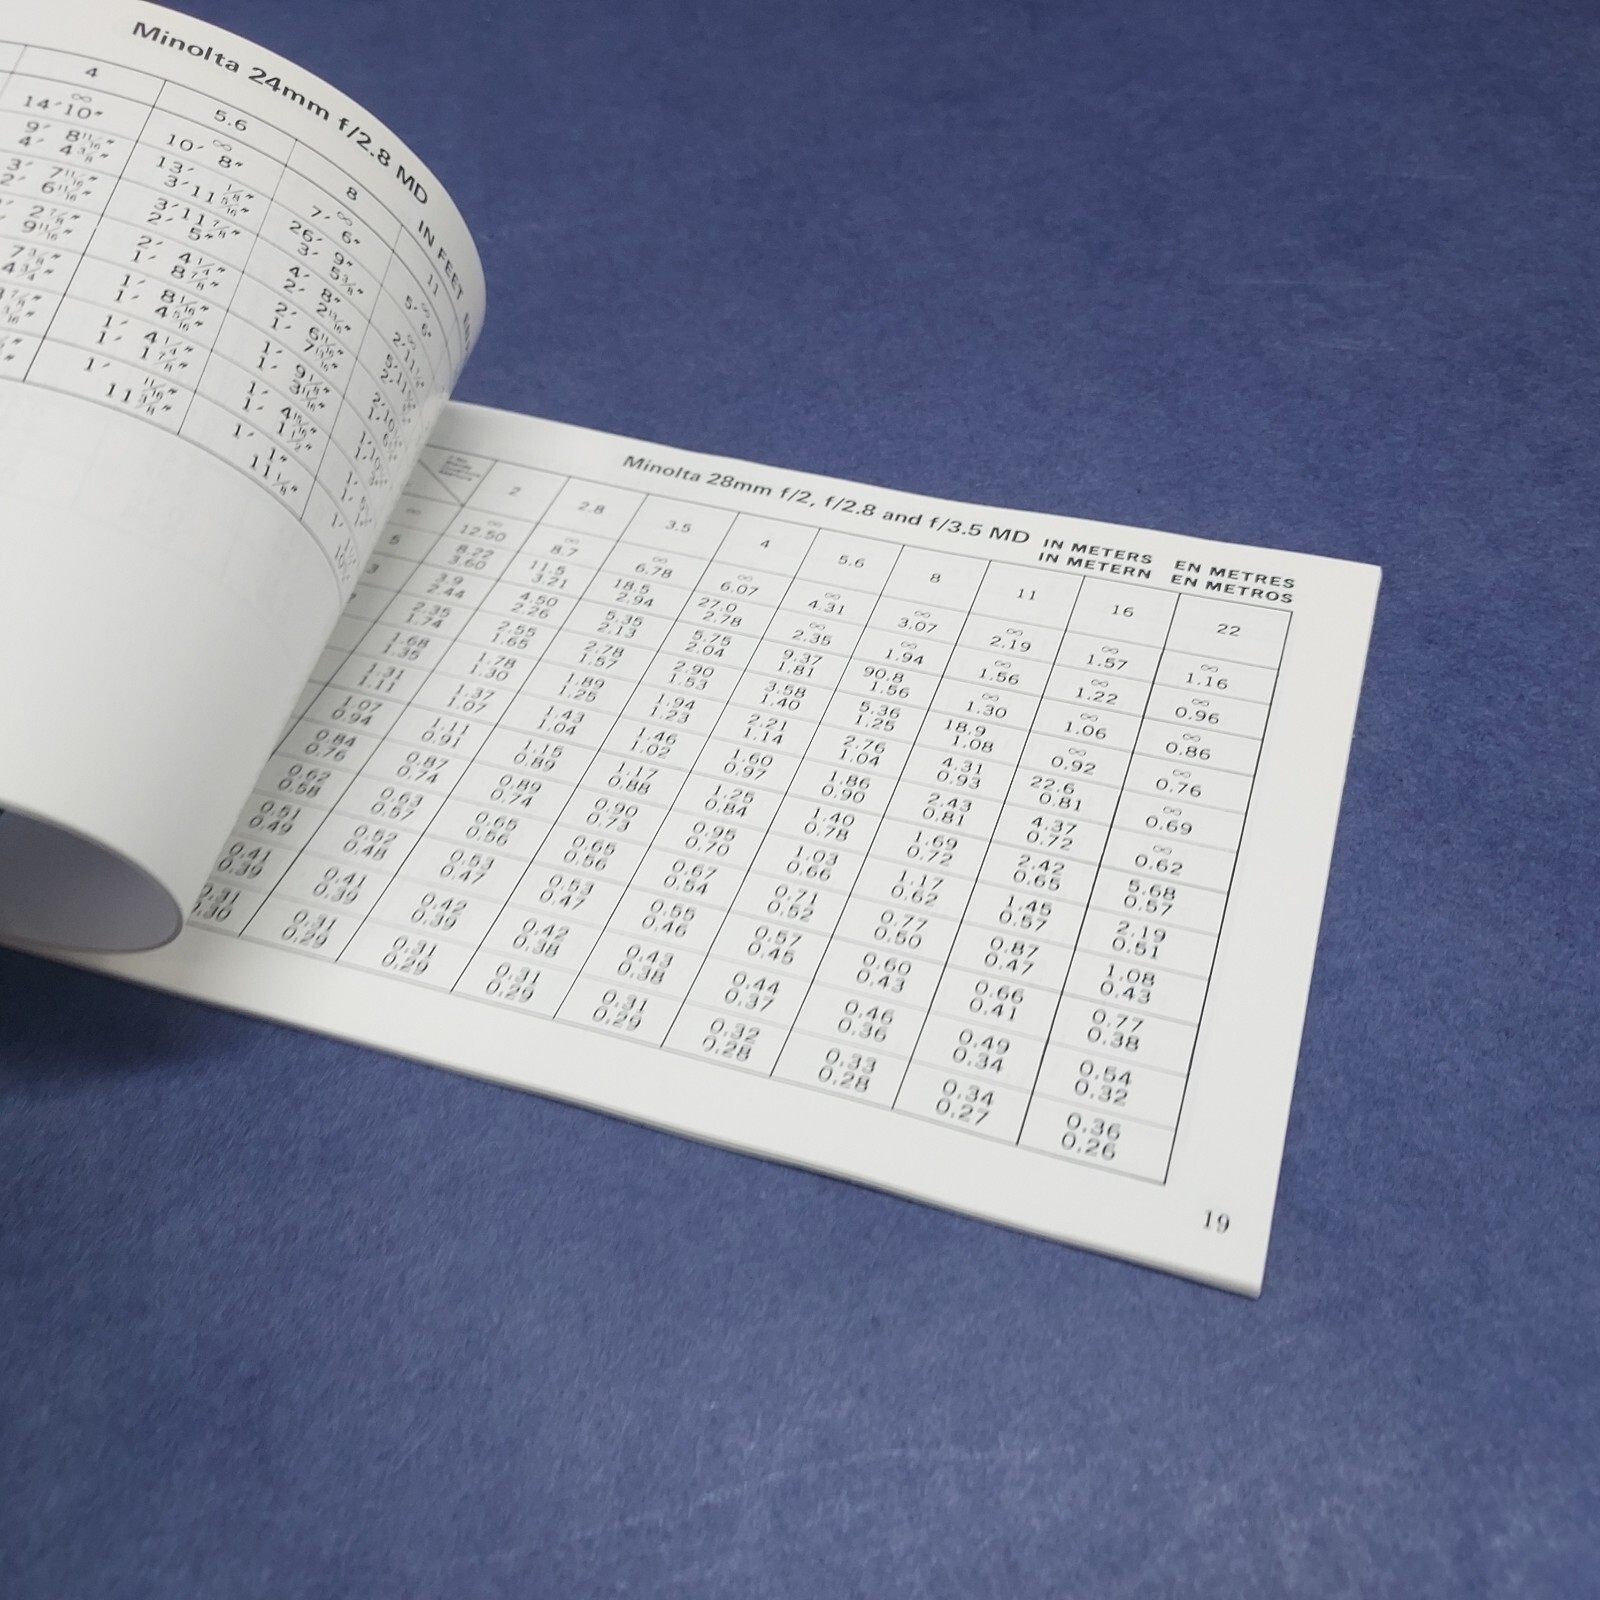 Minolta 24mm f/2.8 MD IN FEET
4 5.6 8 11
∞ ∞ ∞ ∞
14′10″ 10′ 8″ 7′ 6″ 5′ 6″
9′ 8 11/16″ 13′ 1/8″ 26′ 9″ ∞
4′ 4 3/8″ 3′11 5/16″ 3′ 5 3/8″ 2′11 1/2″
3′ 7 11/16″ 3′11 7/8″ 4′ 8″
2′ 6 11/16″ 2′ 5″ 2′ 2 13/16″
2 7/8″ 2′ 4 1/4″ 2′ 6 11/16″
9 11/16″ 1′ 8 7/8″ 1′ 7 13/16″
7 3/8″ 1′ 8 1/16″ 1′ 9 1/8″
4 3/4″ 1′ 4 5/16″ 1′ 3 11/16″
1′ 4 1/4″ 1′ 4 15/16″
1′ 1 7/8″ 1′ 1 1/2″
1′ 11/16″ 1′ 1″
11 3/8″ 11 1/8″
Minolta 28mm f/2, f/2.8 and f/3.5 MD IN METERS EN METRES
IN METERN EN METROS
2 2.8 3.5 4 5.6 8 11 16 22
∞ ∞ ∞ ∞ ∞ ∞ ∞ ∞ ∞ ∞
12.50 8.7 6.78 6.07 4.31 3.07 2.19 1.57 1.16
5 8.22 11.5 18.5 27.0 ∞ ∞ ∞ ∞ ∞
3.60 3.21 2.94 2.78 2.35 1.94 1.56 1.22 0.96
3 3.9 4.50 5.35 5.75 9.37 90.8 ∞ ∞ ∞
2.44 2.26 2.13 2.04 1.81 1.56 1.30 1.06 0.86
2.35 2.55 2.78 2.90 3.58 5.36 18.9 ∞ ∞
1.74 1.65 1.57 1.53 1.40 1.25 1.08 0.92 0.76
1.68 1.78 1.89 1.94 2.21 2.76 4.31 22.6 ∞
1.35 1.30 1.25 1.23 1.14 1.04 0.93 0.81 0.69
1.31 1.37 1.43 1.46 1.60 1.86 2.43 4.37 ∞
1.11 1.07 1.04 1.02 0.97 0.90 0.81 0.72 0.62
1.07 1.11 1.15 1.17 1.25 1.40 1.69 2.42 5.68
0.94 0.91 0.89 0.88 0.84 0.78 0.72 0.65 0.57
0.84 0.87 0.89 0.90 0.95 1.03 1.17 1.45 2.19
0.76 0.74 0.74 0.73 0.70 0.66 0.62 0.57 0.51
0.62 0.63 0.65 0.65 0.67 0.71 0.77 0.87 1.08
0.58 0.57 0.56 0.56 0.54 0.52 0.50 0.47 0.43
0.51 0.52 0.53 0.53 0.55 0.57 0.60 0.66 0.77
0.49 0.48 0.47 0.47 0.46 0.45 0.43 0.41 0.38
0.41 0.41 0.42 0.42 0.43 0.44 0.46 0.49 0.54
0.39 0.39 0.39 0.38 0.38 0.37 0.36 0.34 0.32
0.31 0.31 0.31 0.31 0.31 0.32 0.33 0.34 0.36
0.30 0.29 0.29 0.29 0.29 0.28 0.28 0.27 0.26
19